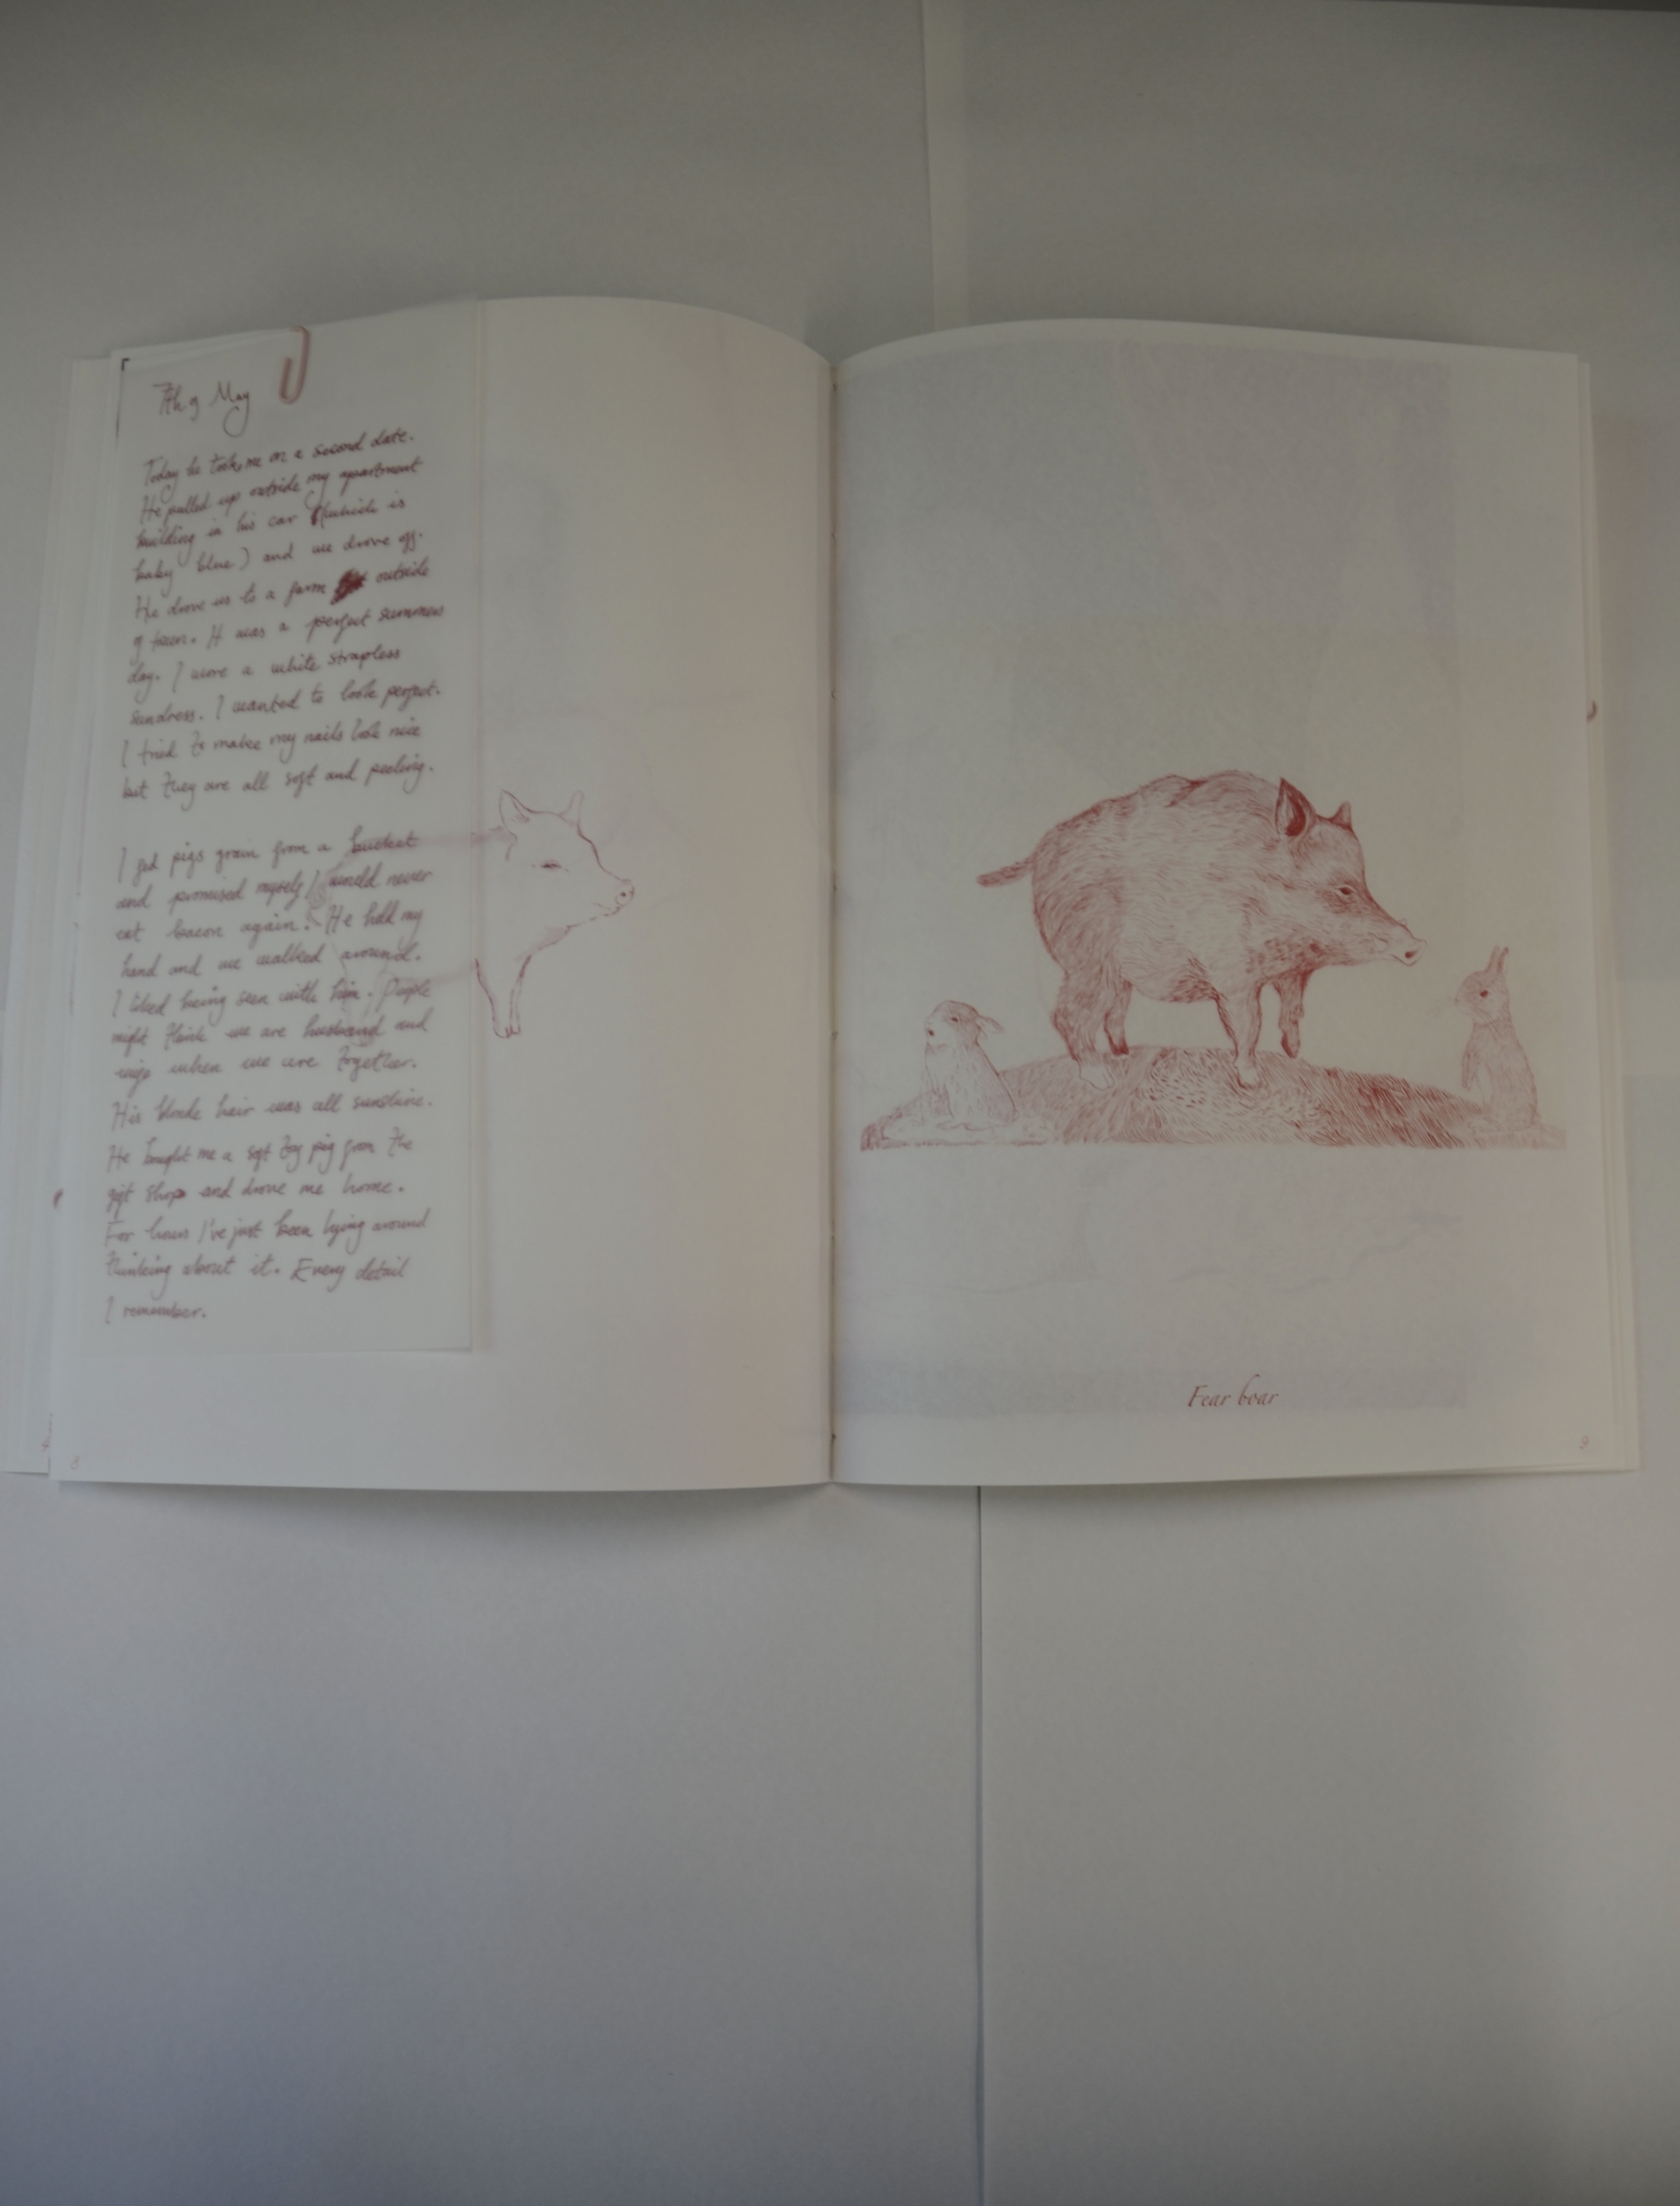 7th of May
Today he took me on a second date.
He pulled up outside my apartment
building in his car (which is
baby blue) and we drove off.
He drove us to a farm outside
of town. It was a perfect summers
day. I wore a white strapless
sundress. I wanted to look perfect.
I tried to make my nails look nice
but they are all soft and peeling.
I fed pigs grain from a bucket
and promised myself I would never
eat bacon again. He held my
hand and we walked around.
I liked being seen with him. People
might think we are husband and
wife when we are together.
His blonde hair was all sunshine.
He bought me a soft toy pig from the
gift shop and drove me home.
For hours I've just been lying around
thinking about it. Every detail
I remember.
8
Fear boar
9